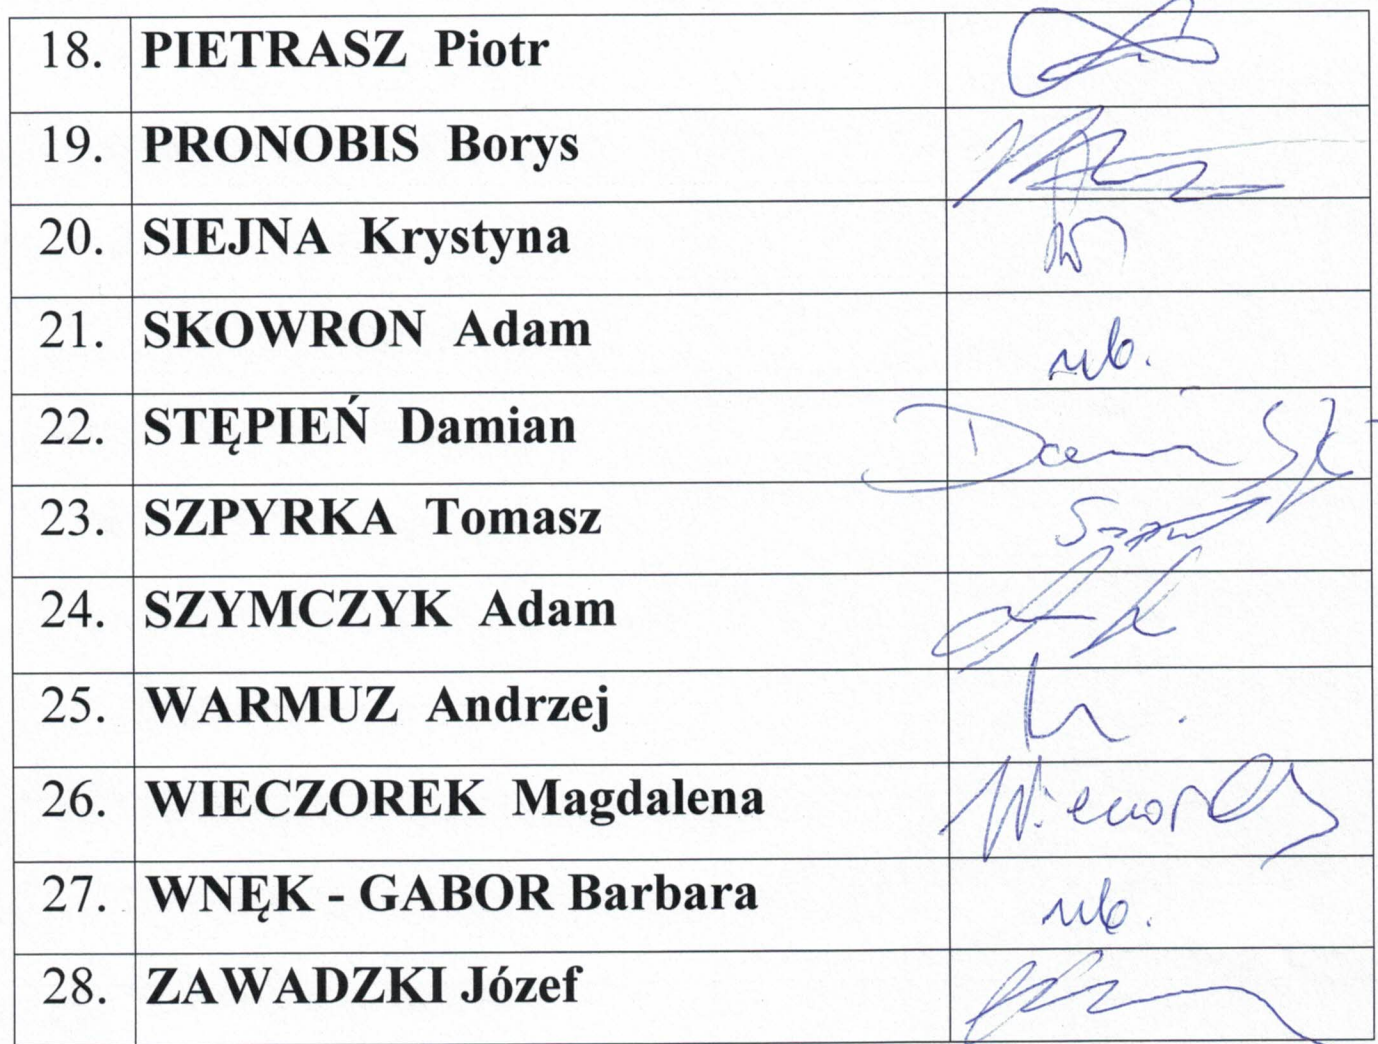 18. PIETRASZ Piotr
19. PRONOBIS Borys
20. SIEJNA Krystyna
21. SKOWRON Adam nb.
22. STĘPIEŃ Damian
23. SZPYRKA Tomasz
24. SZYMCZYK Adam
25. WARMUZ Andrzej
26. WIECZOREK Magdalena
27. WNĘK - GABOR Barbara nb.
28. ZAWADZKI Józef